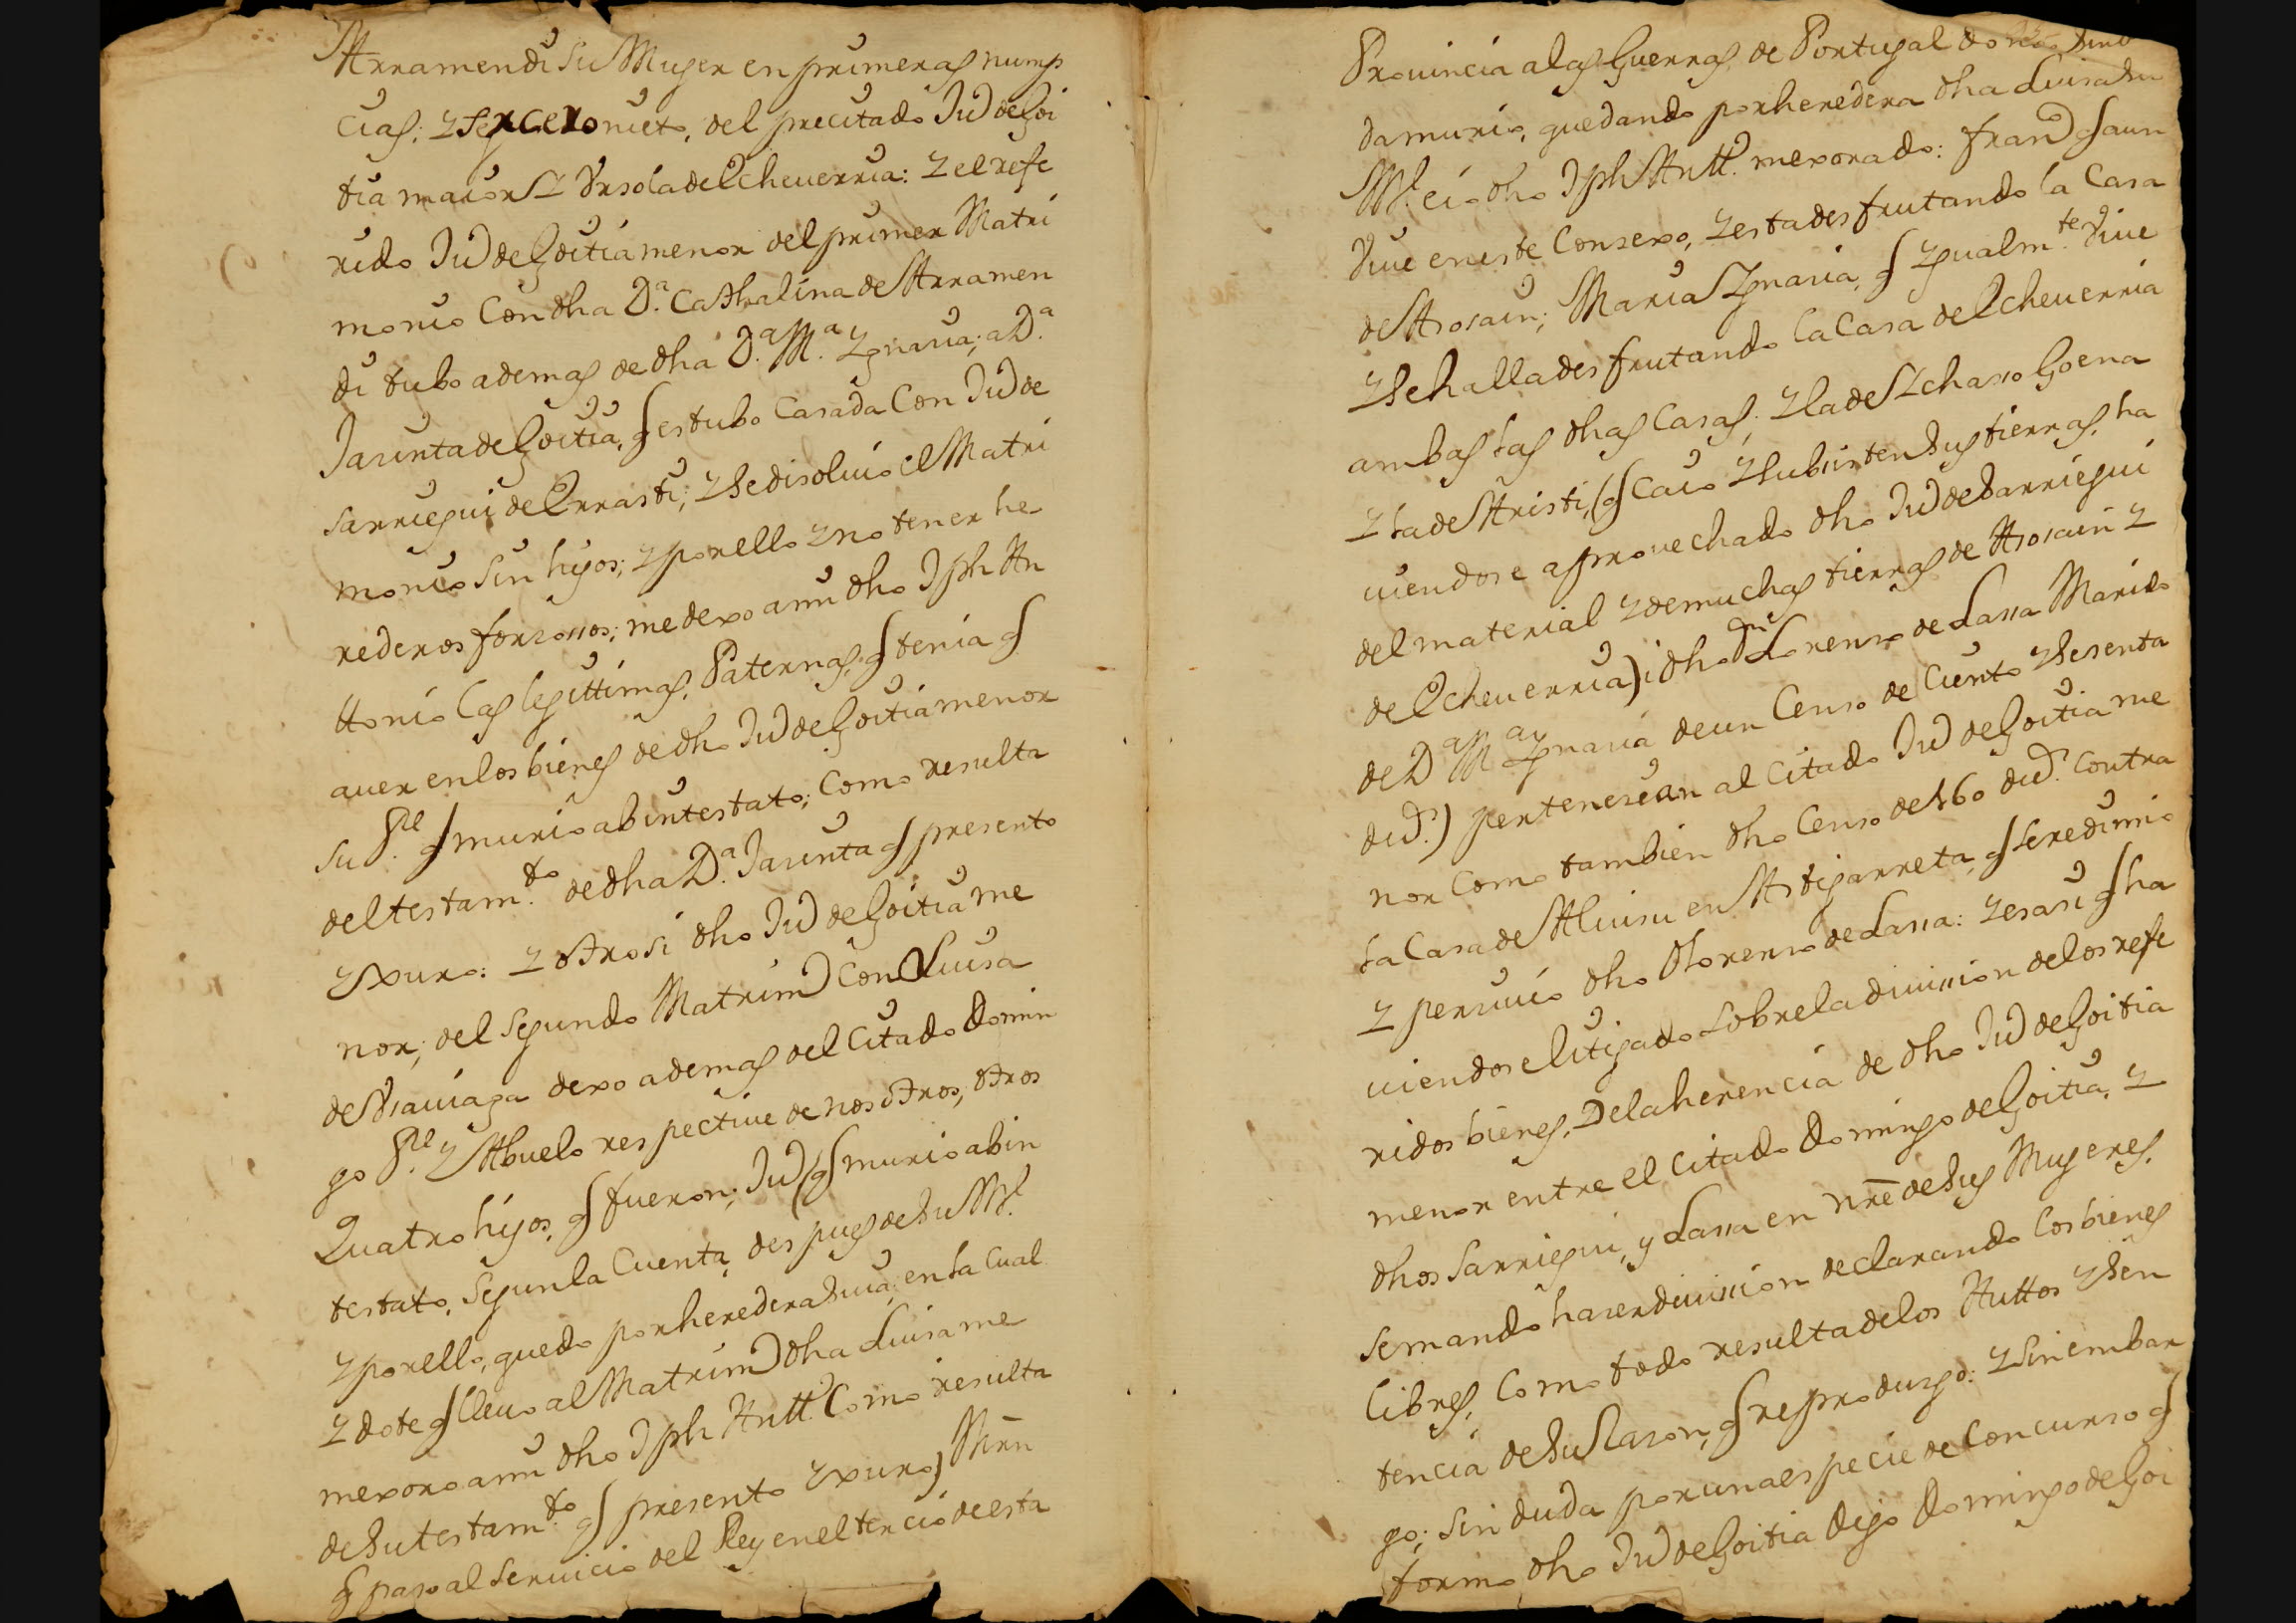 Arramendi su Muger en primeras nump
cias; y tercero nieto, del precitado Ju.o de Goi
tia maior y Vrsola de Echeuerria: y el refe
rido Ju.o de Goitia menor del primer Matri
monio Con dha D.a Cathalina de Arramen
di tubo ademas de dha D.a M.a Ygnacia; a D.a
Jacinta de Goitia, q estubo Casada Con Ju.o de
Sarriegui de Errasti; y se disoluio el Matri
monio sin hijos; y por ello y no tener he
rederos forzosos; me dexo a mi dho Jph An
ttonio las legittimas, Paternas, q tenia q
auer en los bienes de dho Ju.o de Goitia menor
su P.e q murio abintestato; como resulta
del testam.to de dha D.a Jacinta q presento
y juro: y otrosi dho Ju.o de Goitia me
nor; del segundo Matrim.o Con Luisa
de Vsauiaga dexo ademas del Citado Domin
go P.e y Abuelo respectiue de nosotros, otros
Quatro hijos, q fueron; Ju.o (q murio abin
testato, segun la Cuenta, despues de su M.e
y por ello, quedo por heredera suia; en la Cual
y dote q lleuo al Matrim.o dha Luisa me
mejoro a mi dho Jph Antt.o Como resulta
de su testam.to q presento y juro) Mrn
q paso al seruicio del Rey en el tercio de esta
Prouincia a las Guerras de Portugal donde
da murio, quedando por heredera dha Luisa su
M.e i dho Jph Antt.o mejorado: Fran.o q aun
viue en este Consejo, y esta desfrutando la Casa
de Asosain; Maria Ygnacia, q ygualm.te viue
y se halla desfrutando la Casa de Echeuerria
ambas las dhas Casas; y la de Echasso Goena
y la de Aristi, (q Caio y subsisten sus tierras, ha
uiendose aprouechado dho Ju.o de Sarriegui
del material y de muchas tierras de Asosain y
de Echeuerria) i dho Lorenzo de Lassa Marido
de D.a M.a Ygnacia de un Censo de Ciento y sesenta
du.s) pertenecian al Citado Ju.o de Goitia me
nor Como tambien dho Censo de 160 du.s contra
la Casa de Aluisu en Astigarreta, q se redimio
y perciuio dho Lorenzo de Lassa: y es asi q ha
uiendose litigado sobre la diuission de los refe
ridos bienes, De la herencia de dho Ju.o de Goitia
menor entre el Citado Domingo de Goitia, y
dhos Sarriegui, y Lassa en nre de sus Mugeres,
se mando hacer diuission declarando los bienes
libres, Como todo resulta de los Auttos y sen
tencia de su Razon, q reproduzgo: y sin embar
go; sin duda por una especie de Concurso q
formo dho Ju.o de Goitia Dijo Domingo de Goi